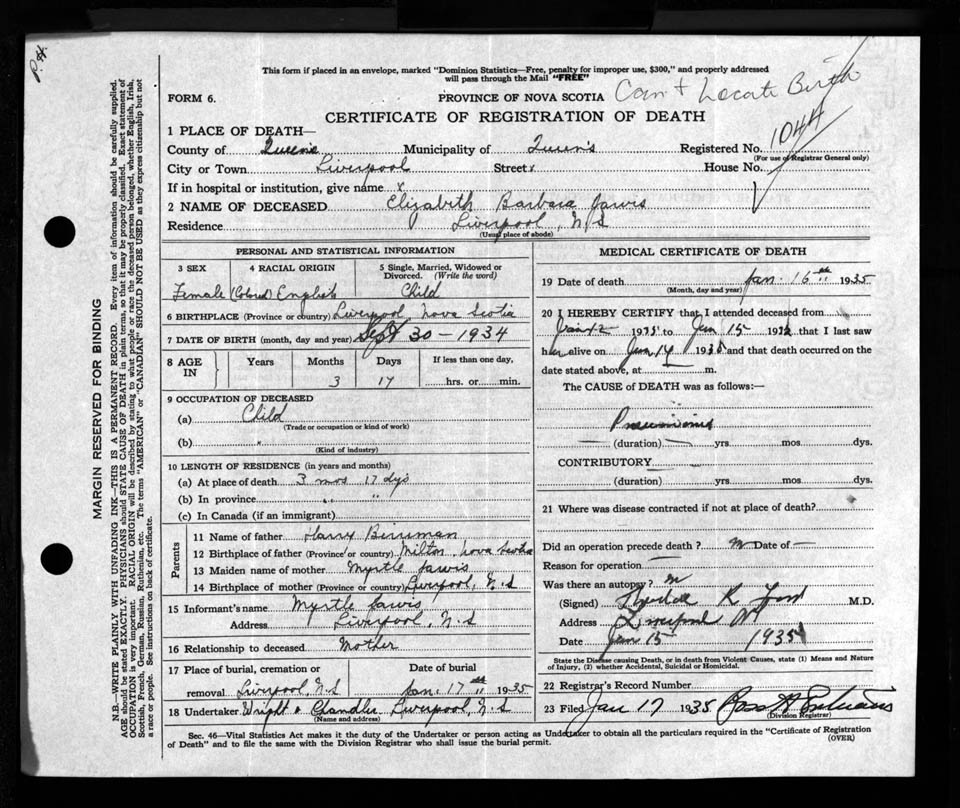 P.H.
This form if placed in an envelope, marked "Dominion Statistics—Free, penalty for improper use, $300," and properly addressed
will pass through the Mail "FREE"
FORM 6. PROVINCE OF NOVA SCOTIA Can't Locate Birth
CERTIFICATE OF REGISTRATION OF DEATH
1 PLACE OF DEATH— 1044
County of Queen's Municipality of Queen's Registered No.
(For use of Registrar General only)
City or Town Liverpool Street House No.
If in hospital or institution, give name
2 NAME OF DECEASED Elizabeth Barbara Jarvis
Residence Liverpool, N.S
(Usual place of abode)
PERSONAL AND STATISTICAL INFORMATION
3 SEX 4 RACIAL ORIGIN 5 Single, Married, Widowed or
Divorced. (Write the word)
Female (Colored) English Child
6 BIRTHPLACE (Province or country) Liverpool Nova Scotia
7 DATE OF BIRTH (month, day and year) Sept 30 - 1934
8 AGE IN Years Months Days If less than one day,
3 17 hrs. or min.
9 OCCUPATION OF DECEASED
(a) Child
(Trade or occupation or kind of work)
(b) "
(Kind of industry)
10 LENGTH OF RESIDENCE (in years and months)
(a) At place of death 3 mos 17 dys
(b) In province " "
(c) In Canada (if an immigrant)
Parents
11 Name of father Harry
12 Birthplace of father (Province or country) Milton Nova Scotia
13 Maiden name of mother Myrtle Jarvis
14 Birthplace of mother (Province or country) Liverpool, N.S
15 Informant's name Myrtle Jarvis
Address Liverpool, N.S
16 Relationship to deceased Mother
17 Place of burial, cremation or Date of burial
removal Liverpool, N.S Jan. 17th 1935
18 Undertaker Wright & Chandler Liverpool, N.S
(Name and address)
MEDICAL CERTIFICATE OF DEATH
19 Date of death Jan. 16th 1935
(Month, day and year)
20 I HEREBY CERTIFY that I attended deceased from
Jan 12 1935 to Jan 15 193 that I last saw
her alive on Jan 14 1935 and that death occurred on the
date stated above, at m.
The CAUSE of DEATH was as follows:—
Pneumonia
(duration) yrs. mos. dys.
CONTRIBUTORY
(duration) yrs. mos. dys.
21 Where was disease contracted if not at place of death?
Did an operation precede death? Date of —
Reason for operation
Was there an autopsy?
(Signed) M.D.
Address Liverpool NS
Date Jan 15 1935
State the Disease causing Death, or in death from Violent Causes, state (1) Means and Nature
of Injury, (2) whether Accidental, Suicidal or Homicidal.
22 Registrar's Record Number
23 Filed Jan 17 1935
(Division Registrar)
Sec. 46—Vital Statistics Act makes it the duty of the Undertaker or person acting as Undertaker to obtain all the particulars required in the "Certificate of Registration
of Death" and to file the same with the Division Registrar who shall issue the burial permit. (OVER)
MARGIN RESERVED FOR BINDING
N.B.—WRITE PLAINLY WITH UNFADING INK—THIS IS A PERMANENT RECORD. Every item of information should be carefully supplied.
AGE should be stated EXACTLY. PHYSICIANS should STATE CAUSE OF DEATH in plain terms, so that it may be properly classified. Exact statement of
OCCUPATION is very important. RACIAL ORIGIN will be described by stating to what people or race the deceased person belonged, whether English, Irish,
Scottish, French, German, Russian, Ruthenian, etc. The terms "AMERICAN" or "CANADIAN" SHOULD NOT BE USED as they express citizenship but not
a race or people. See instructions on back of certificate.